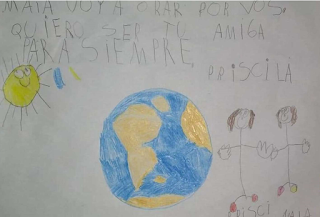 MAIA VOY A ORAR POR VOS,
QUIERO SER TU AMIGA
PARA SIEMPRE
PRISCILA
PRISCI MAIA